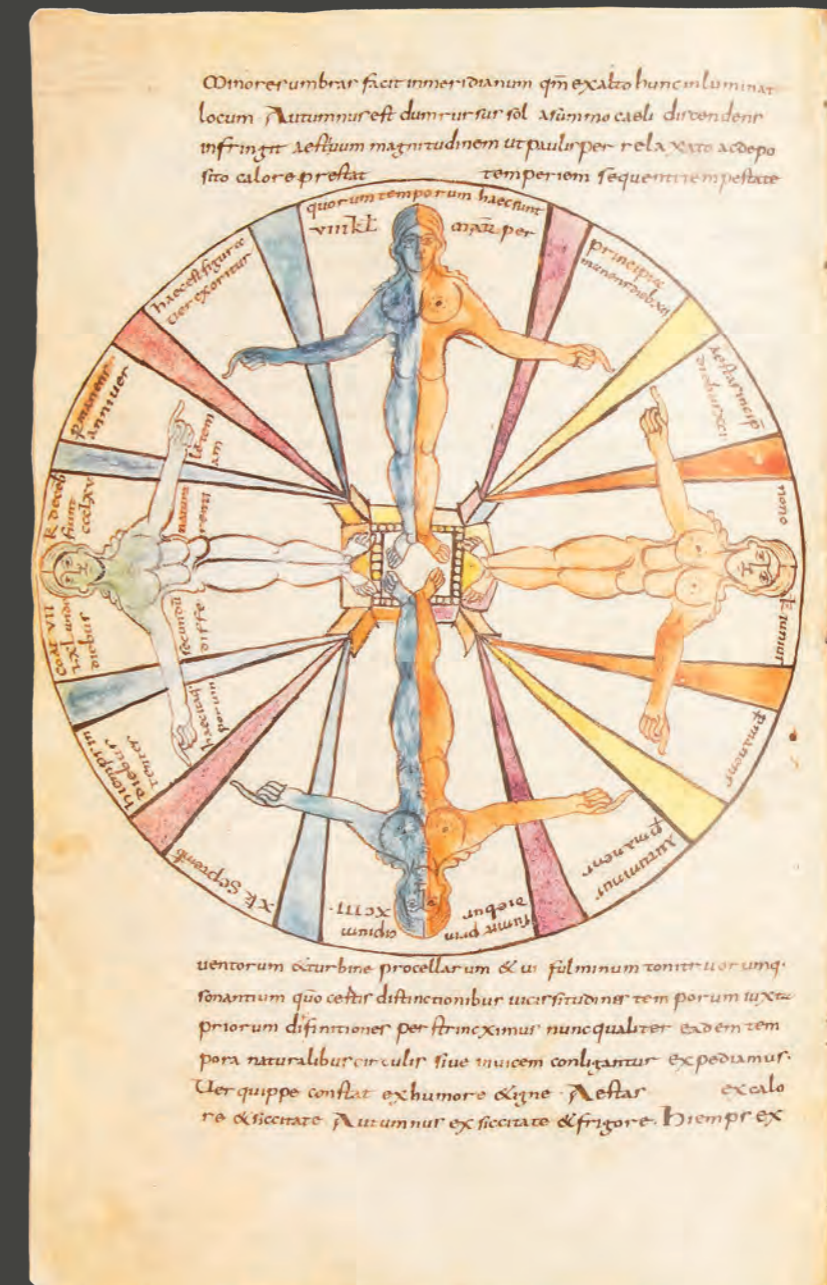 Minores umbras facit in meridianum qm̄ ex alto hunc inluminat
locum Autumnus est dum rursus sol a summo caeli discendens
infringit aestiuum magnitudinem ut paulisper relaxato ac depo
sito calore prestat temperiem sequenti tempestate
quorum temporum haec sunt
VIII kƚ mar̄ per
principia
manens dieb XCI
aestas incip̄
diebus XCI
nono
k iunius
ꝑmanens
autumnus
ꝑmanens
sumit prin
diebus
cipium
XCIII.
XK Septemb̄
hiemps in
diebus
haec est figura
uer exoritur
ꝑmanens
anni uer
R dieb
fiunt
CCCLXV
natura
secundū
diffe
uentorum & turbine procellarum & ui fulminum tonitruorumq·
sonantium quo certis distinctionibus uicissitudines temporum iuxta
priorum difinitiones perstrinximus nunc qualiter eadem tem
pora naturalibus circulis siue inuicem conligantur expediamus·
Uer quippe constat ex humore & igne Aestas ex calo
re & siccitate Autumnus ex siccitate & frigore. Hiemps ex